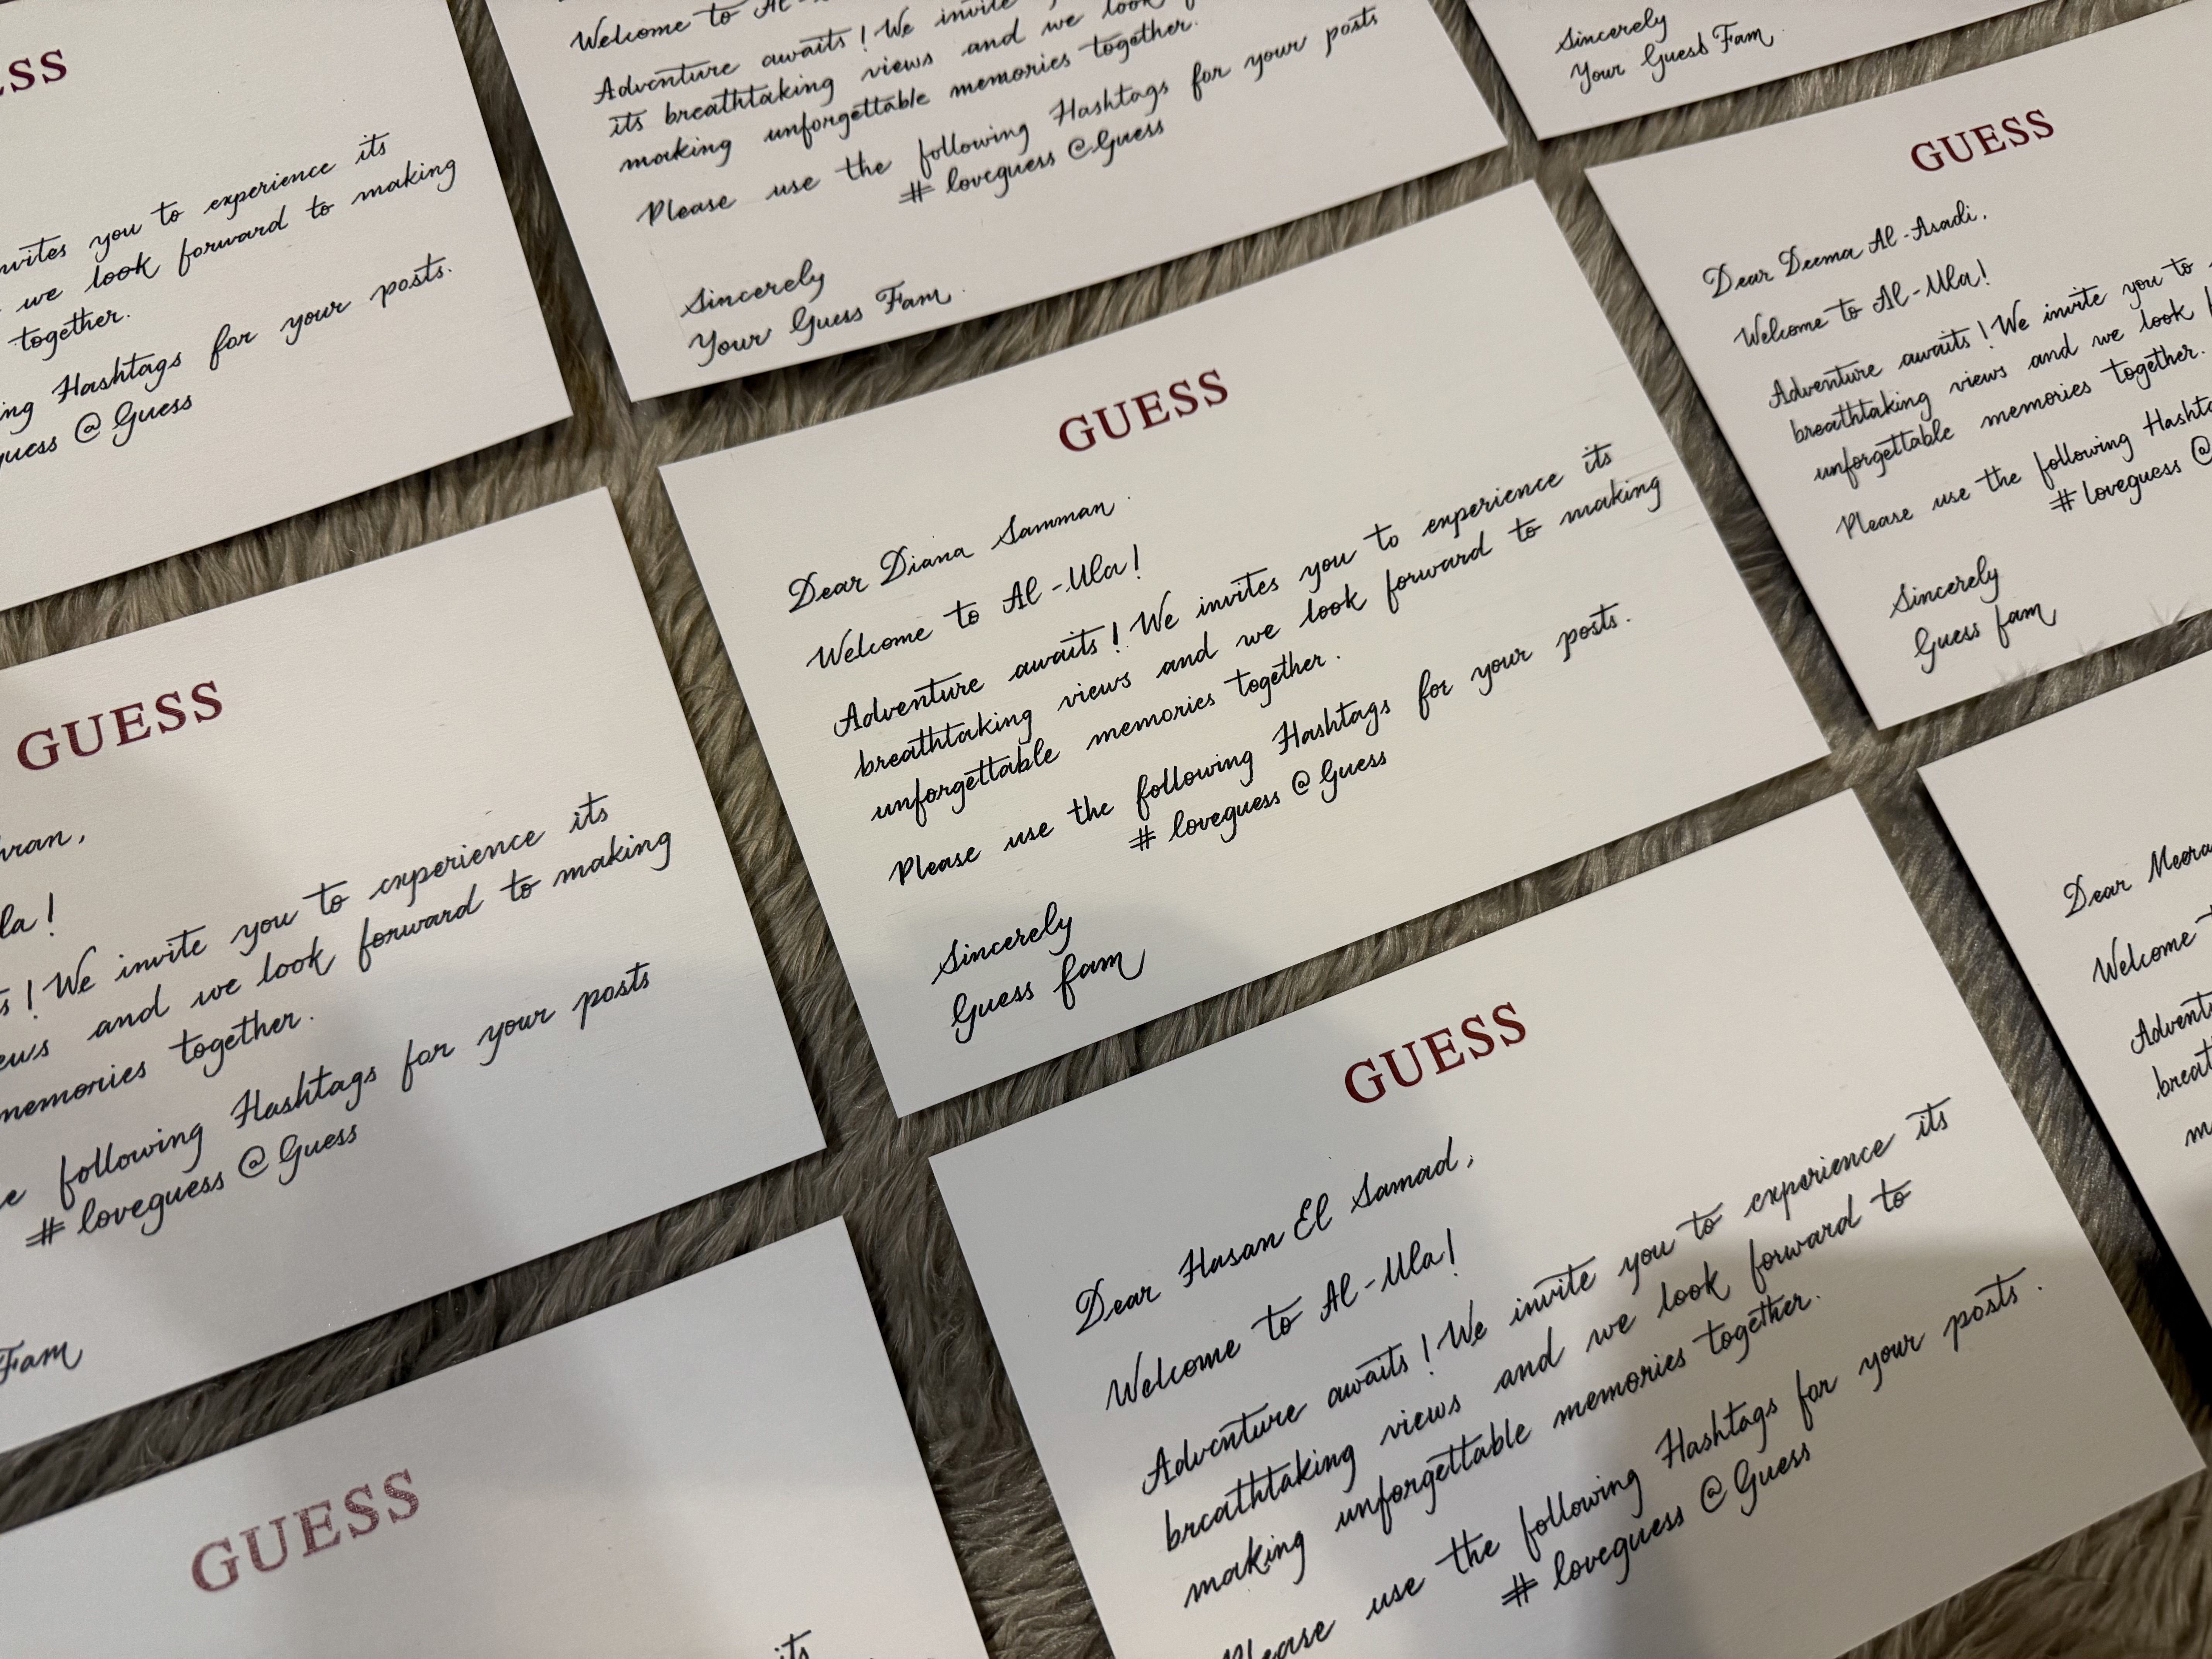 ESS
invites you to experience its
we look forward to making
together.
Hashtags for your posts.
@ Guess
Welcome to Al-
Adventure awaits! We invite
its breathtaking views and we look
making unforgettable memories together.
Please use the following Hashtags for your posts
# loveguess @Guess
Sincerely
Your Guess Fam.
Sincerely
Your Guess Fam
GUESS
Dear Deema Al-Asadi,
Welcome to Al-Ula!
Adventure awaits! We invite you to
breathtaking views and we look
unforgettable memories together.
Please use the following
# loveguess @
Sincerely
Guess fam
GUESS
la!
! We invite you to experience its
and we look forward to making
memories together.
following Hashtags for your posts
# loveguess @ Guess
Fam
GUESS
Dear Diana Samman.
Welcome to Al-Ula!
Adventure awaits! We invites you to experience its
breathtaking views and we look forward to making
unforgettable memories together.
Please use the following Hashtags for your posts.
# loveguess @ Guess
Sincerely
Guess fam
GUESS
Dear Hasan El Samad,
Welcome to Al-Ula!
Adventure awaits! We invite you to experience its
breathtaking views and we look forward to
making unforgettable memories together.
Please use the following Hashtags for your posts.
# loveguess @ Guess
Dear Meera
Welcome
GUESS
its